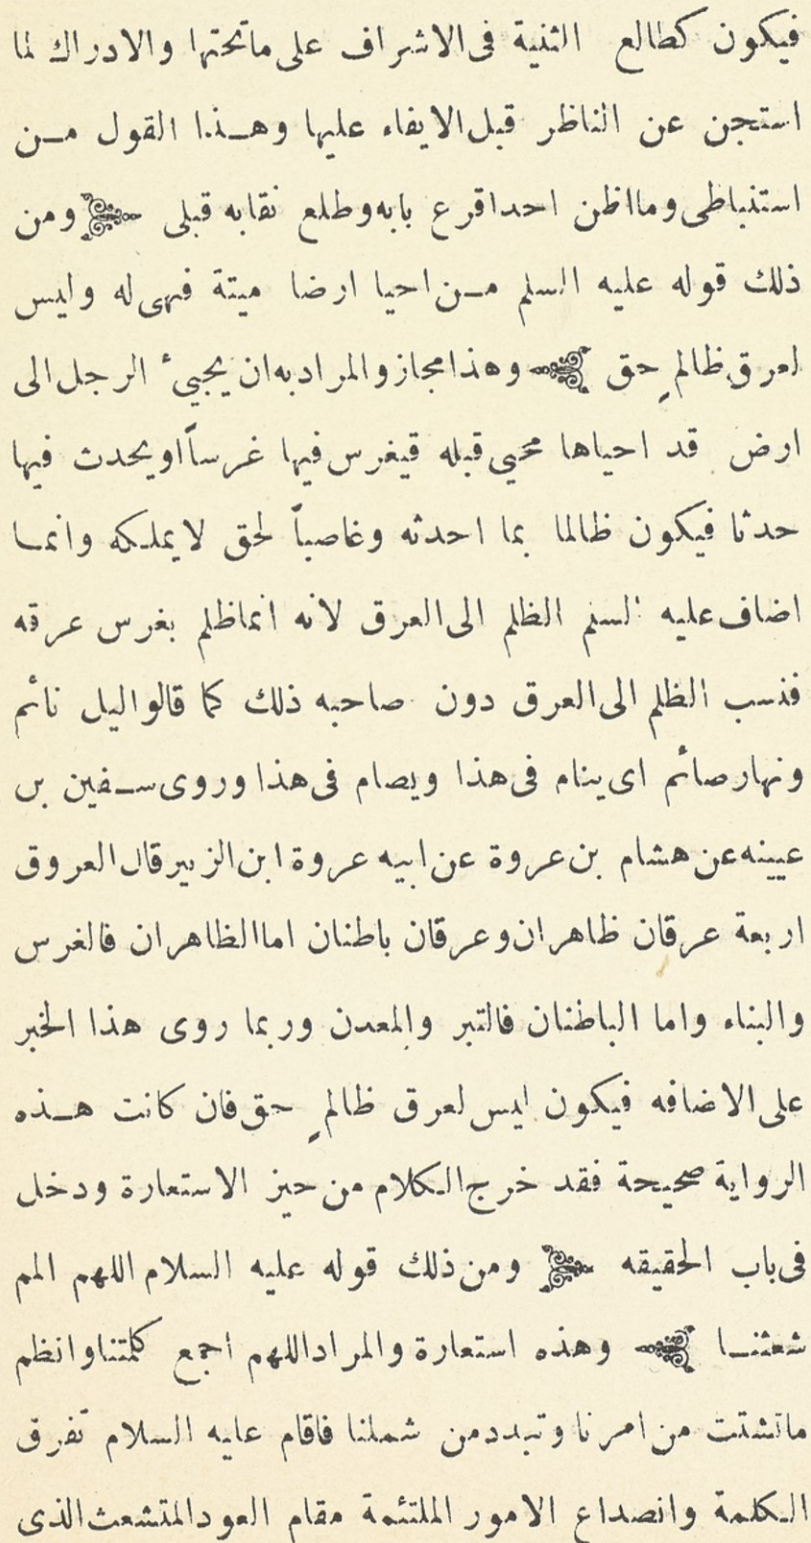 فيكون كطالع الثنية فى الاشراف على ماتحتها والادراك لما
استجن عن الناظر قبل الايفاء عليها وهـذا القول مـن
استنباطى ومااظن احداقرع بابه وطلع نقابه قبلى ومن
ذلك قوله عليه السلم مـن احيا ارضا ميتة فهى له وليس
لعرق ظالمٍ حق وهذا مجاز والمراد به ان يجيىٔ الرجل الى
ارض قد احياها محيى قبله قيغرس فيها غرساً اويحدث فيها
حدثا فيكون ظالما بما احدثه وغاصباً لحق لايملكه وانمـا
اضاف عليه السلم الظلم الى العرق لانه انماظلم بغرس عرقه
فنسب الظلم الى العرق دون صاحبه ذلك كما قالوا ليل نائم
ونهار صائم اى ينام فى هذا ويصام فى هذا وروى سـفين بن
عيينه عن هشام بن عروة عن ابيه عروة ابن الزبير قال العروق
اربعة عرقان ظاهران وعرقان باطنان اما الظاهران فالغرس
والبناء واما الباطنان فالتبر والمعدن وربما روى هذا الخبر
على الاضافه فيكون ليس لعرق ظالمٍ حق فان كانت هـذه
الرواية صحيحة فقد خرج الكلام من حيز الاستعارة ودخل
فى باب الحقيقه ومن ذلك قوله عليه السلام اللهم المم
شعثنـا وهذه استعارة والمراد اللهم اجمع كلمتنا وانظم
ماتشتت من امرنا وتبدد من شملنا فاقام عليه السلام تفرق
الكلمة وانصداع الامور الملتئمة مقام العود المتشعث الذى